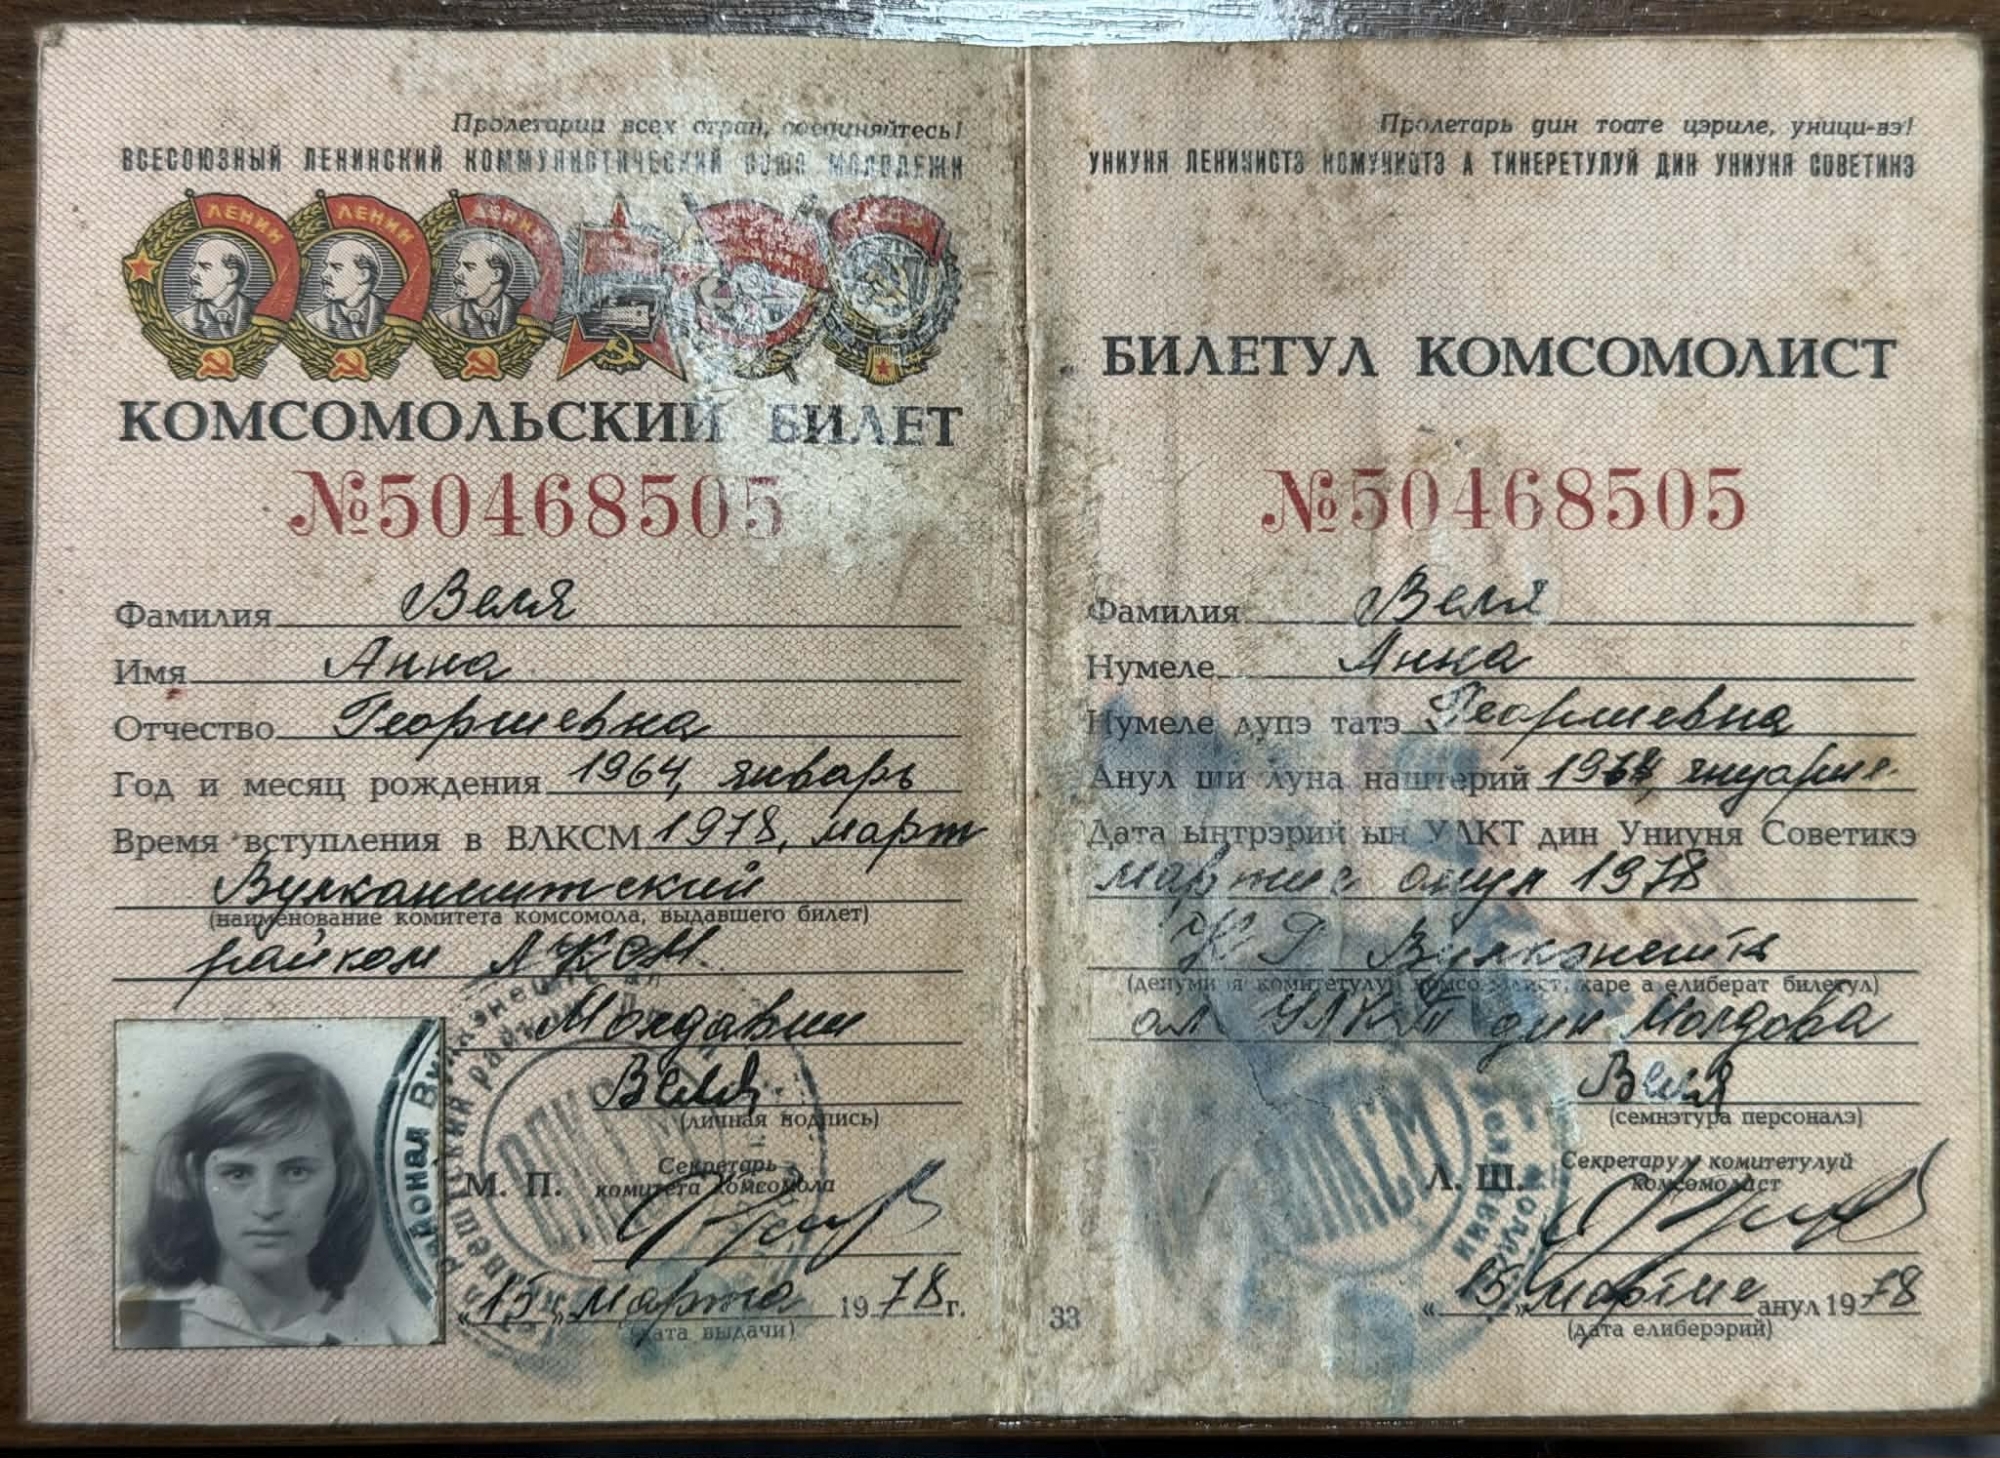 Пролетарии всех стран, соединяйтесь!
ВСЕСОЮЗНЫЙ ЛЕНИНСКИЙ КОММУНИСТИЧЕСКИЙ СОЮЗ МОЛОДЕЖИ
ЛЕНИН ЛЕНИН ЛЕНИН
КОМСОМОЛЬСКИЙ БИЛЕТ
№50468505
Фамилия Веля
Имя Анна
Отчество Георгиевна
Год и месяц рождения 1964, январь
Время вступления в ВЛКСМ 1978, март
Вулканештский
(наименование комитета комсомола, выдавшего билет)
райком ЛКСМ
Молдавии
Веля
(личная подпись)
М. П.
Секретарь
комитета комсомола
ВЛКСМ
«15» марта 1978 г.
(дата выдачи)
Пролетарь дин тоате цэриле, уници-вэ!
УНИУНЯ ЛЕНИНИСТЭ КОМУНИСТЭ А ТИНЕРЕТУЛУЙ ДИН УНИУНЯ СОВЕТИКЭ
БИЛЕТУЛ КОМСОМОЛИСТ
№50468505
Фамилия Веля
Нумеле Анна
Нумеле дупэ татэ Георгиевна
Анул ши луна наштерий 1964, януарие
Дата ынтрэрий ын УЛКТ дин Униуня Советикэ
мартие анул 1978
КР Вулкэнешть
(денумиря комитетулуй комсомолист, каре а елиберат билетул)
ал УЛКТ дин Молдова
Веля
(семнэтура персоналэ)
Л. Ш.
Секретарул комитетулуй
комсомолист
ВЛКСМ
«15» мартие анул 1978
(дата елиберэрий)
33